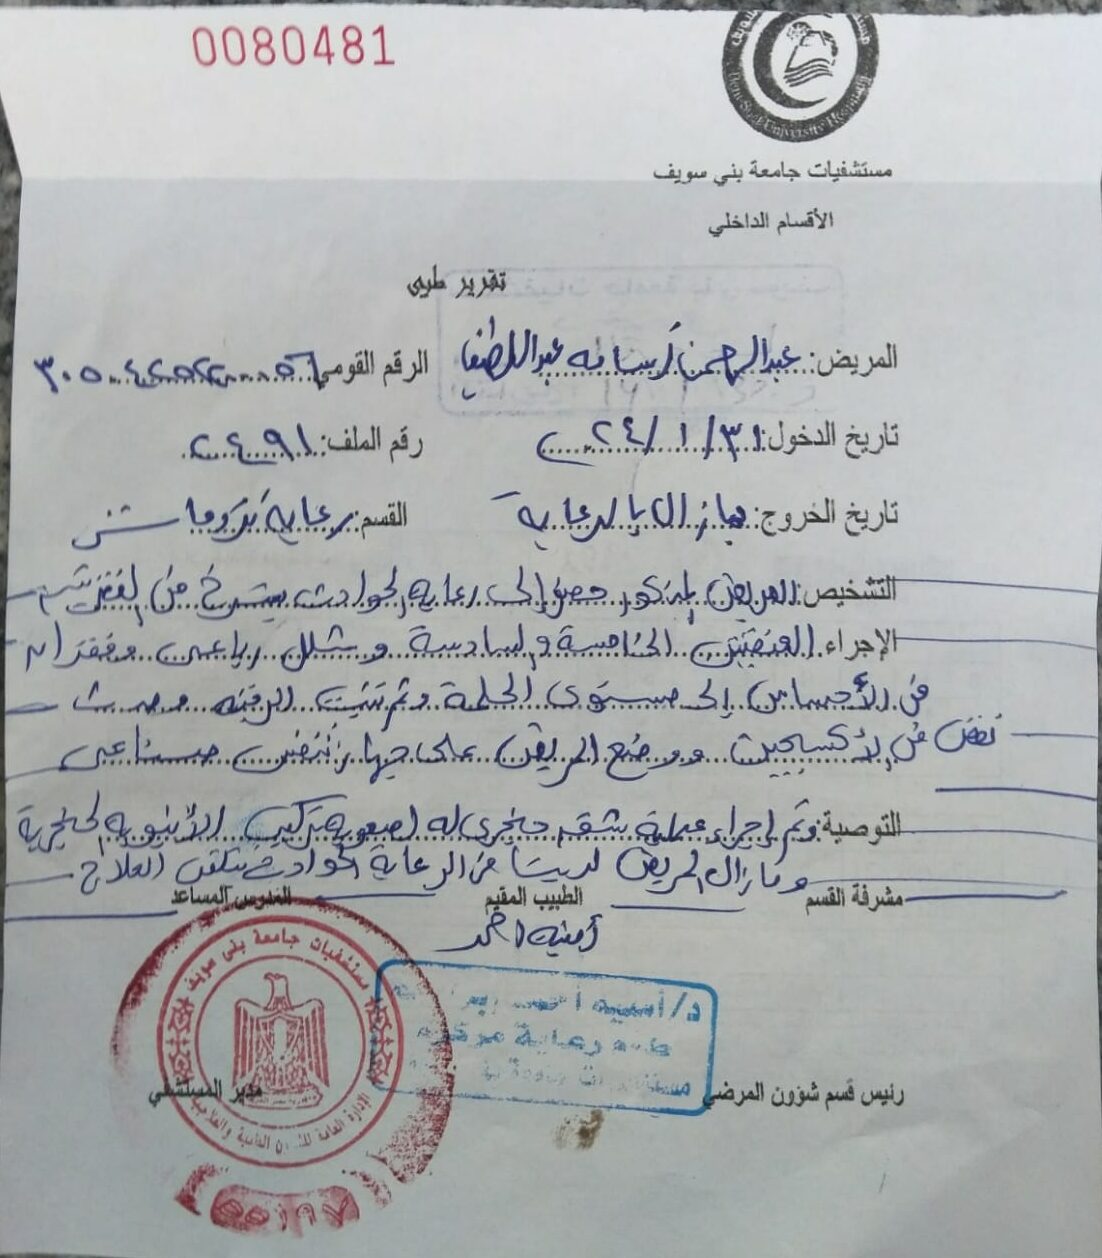 0080481
Beni-Suef University Hospitals
مستشفيات جامعة بني سويف
الأقسام الداخلي
تقرير طبى
المريض: عبدالرحمن أسامه عبداللطيف الرقم القومي
تاريخ الدخول: ٣١/ ١/ ٢٠٢٤ رقم الملف: ٢٤٩١
تاريخ الخروج: مازال بالرعاية القسم: رعاية تروما
التشخيص: المريض المذكور حضر إلى رعاية الحوادث من الفقرتين
الإجراء العنقيتين الخامسة والسادسة وشلل رباعى وفقدان
فى الإحساس إلى مستوى الحلمة وتم تثبيت الرقبه
نقص فى الأكسجين ووضع المريض على جهاز تنفس صناعى
التوصية: وتم إجراء عملية شق حنجرى له لصعوبة تركيب الأنبوبه الحنجرية
ومازال المريض لدينا فى الرعاية الحوادث يتلقى العلاج
مشرفة القسم الطبيب المقيم المدرس المساعد
أمنيه احمد
د/ أمنيه أحمد
مستشفيات جامعة بني سويف
رئيس قسم شؤون المرضي مدير المستشفي